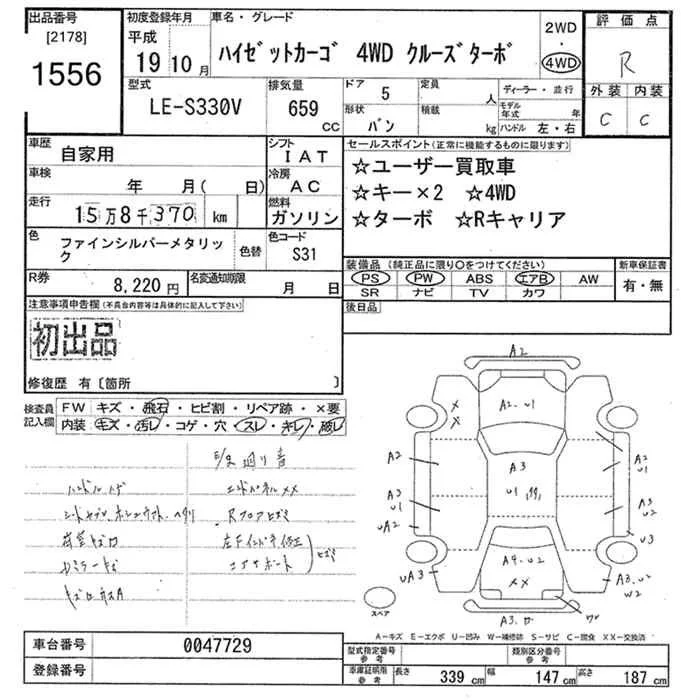 出品番号
[2178]
1556
初度登録年月
平成
19 10 月
車名・グレード
ハイゼットカーゴ 4WD クルーズターボ
2WD
・
4WD
評価点
R
外装 内装
C C
型式
LE-S330V
排気量
659
cc
ドア 5
形状 バン
定員 人
積載 kg
ディーラー・並行
モデル年式 年
ハンドル 左・右
車歴
自家用
シフト
IAT
車検
年 月( 日)
冷房
AC
走行
15万8千370 km
燃料
ガソリン
色
ファインシルバーメタリック
色替
色コード
S31
R券
8,220円
名変通知期限
月 日
セールスポイント(正常に機能するものに限ります)
☆ユーザー買取車
☆キー×2 ☆4WD
☆ターボ ☆Rキャリア
装備品(純正品に限り○をつけてください)
PS PW ABS エアB AW
SR ナビ TV カワ
新車保証書
有・無
後日品
注意事項申告欄(不具合内容等は具体的に記入して下さい)
初出品
修復歴 有〔箇所 〕
検査員記入欄
FW キズ・飛石・ヒビ割・リペア跡・×要
内装・キズ・汚レ・コゲ・穴・スレ・キレ・破レ
ハンドルスレ
エンドパネル××
Rフロアヒズミ
A2
A2.U1
A3
U1
A2
A3
U1
UA2
UA3
A3
U2
U3
A4.U2
××
A3.U2
W2
スペア
A-キズ E-エクボ U-凹み W-補修跡 S-サビ C-腐食 XX-交換済
車台番号
0047729
登録番号
型式指定番号
参考
類別区分番号
参考
車庫証明用
参考
長さ 339 cm 幅 147 cm 高さ 187 cm